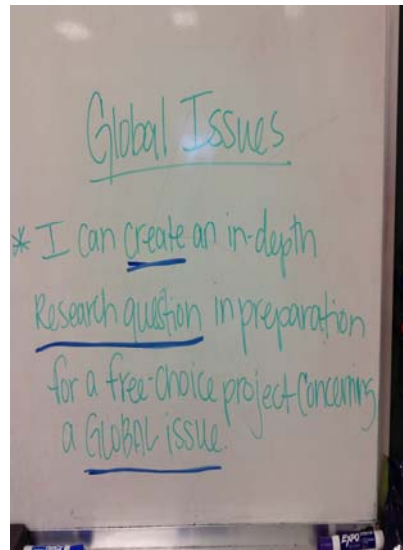 Global Issues
* I can create an in-depth
Research question in preparation
for a free-choice project concerning
a GLOBAL issue.
EXPO